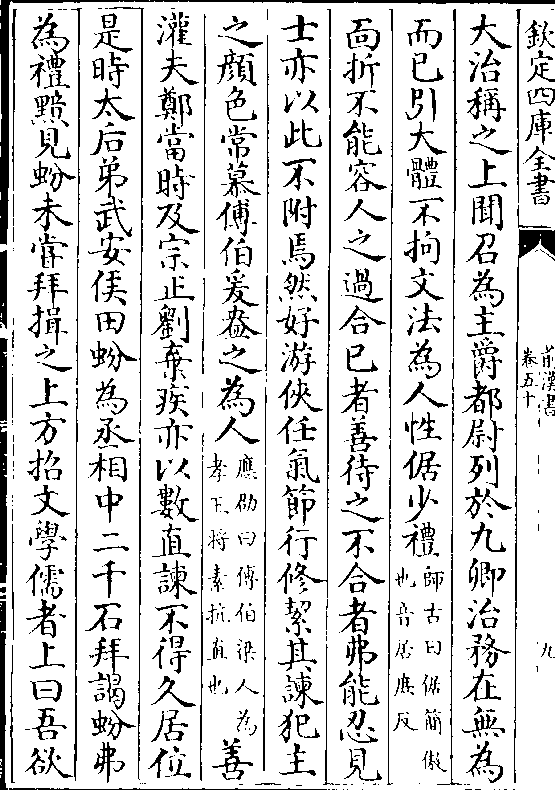 欽定四庫全書
前漢書
卷五十
九
大治稱之上聞召為主爵都尉列於九卿治務在無為
而已引大體不拘文法為人性倨少禮師古曰倨簡傲也音居庶反
面折不能容人之過合已者善待之不合者弗能忍見
士亦以此不附焉然好游俠任氣節行修絜其諫犯主
之顔色常慕傅伯爰盎之為人應劭曰傅伯梁人為孝王將素抗直也善
灌夫鄭當時及宗正劉棄疾亦以數直諫不得久居位
是時太后弟武安侯田蚡為丞相中二千石拜謁蚡弗
為禮黯見蚡未嘗拜揖之上方招文學儒者上曰吾欲